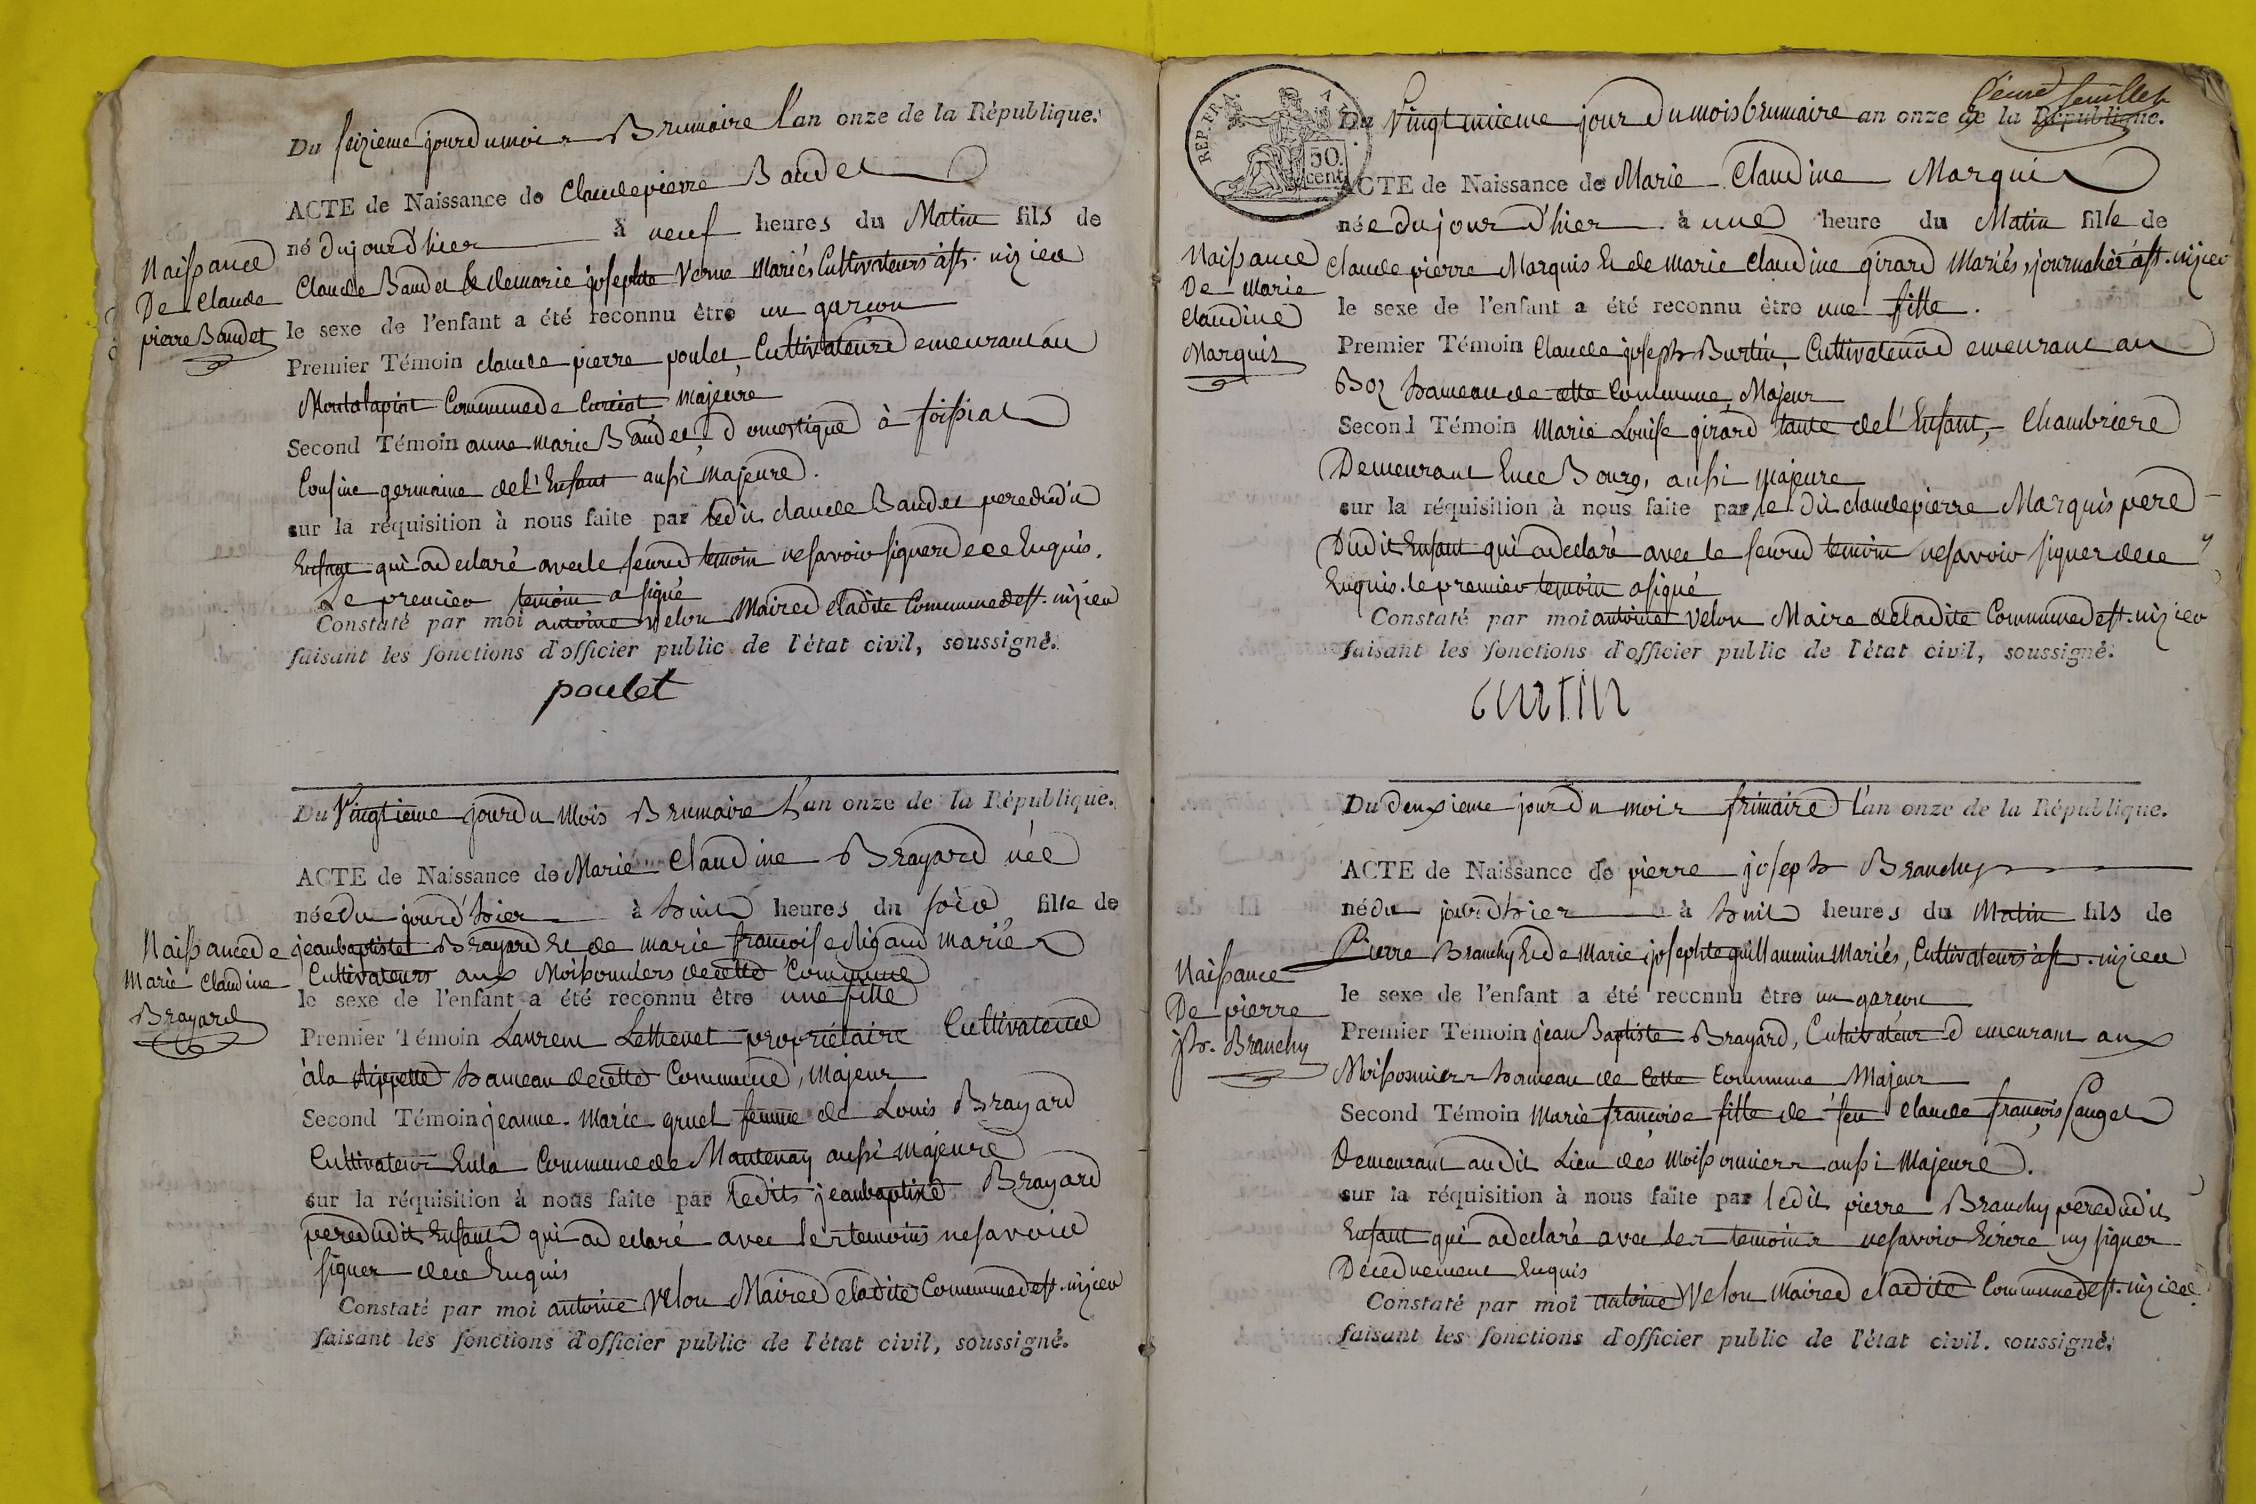 Du seizieme jour du mois Brumaire l'an onze de la République.
ACTE de Naissance de Claude pierre Baudet
né du jour d'hier à neuf heures du Matin fils de
Claude Baudet & de marie josephte Verne Mariés Cultivateurs à st. nizier
le sexe de l'enfant a été reconnu être un garçon
Premier Témoin claude pierre poulet, Cultivateur demeurant au
Montalapint Commune de Curciat majeure
Second Témoin anne marie Baudet, domestique à foissiat
Cousine germaine de l'Enfant aussi majeure.
sur la réquisition à nous faite par ledit claude Baudet pere dudit
Enfant qui a declaré avec le second temoin ne savoir signer de ce Enquis.
Le premier temoin a signé
Constaté par moi antoine velon Maire de ladite Commune de st. nizier
faisant les fonctions d'officier public de l'état civil, soussigné.
poulet
Naissance
De Claude
pierre Baudet
Du Vingtieme jour du Mois Brumaire l'an onze de la République.
ACTE de Naissance de Marie Claudine Brayard née
née du jour d'hier à huit heures du soir fille de
jean baptiste Brayard Et de marie françoise Rigaud mariés
Cultivateurs aux Moissonniers de cette Commune
le sexe de l'enfant a été reconnu être une fille
Premier Témoin Laurent Lethenet propriétaire Cultivateur
à la hameau de cette Commune, majeur
Second Témoin jeanne-marie gruel femme de Louis Brayard
Cultivateur En la Commune de Mantenay aussi majeure
sur la réquisition à nous faite par ledit jean baptiste Brayard
pere dudit Enfant qui a declaré avec les temoins ne savoir
signer de ce Enquis
Constaté par moi antoine velon Maire de ladite Commune de st. nizier
faisant les fonctions d'officier public de l'état civil, soussigné.
Naissance de
Marie Claudine
Brayard
feuillet
REP. FRA.
50.
cent.
Du Vingt unieme jour du mois brumaire an onze de la République.
ACTE de Naissance de Marie Claudine Marquis
née du jour d'hier à une heure du Matin fille de
Claude pierre Marquis Et de marie Claudine girard Mariés, journalier à st. nizier
le sexe de l'enfant a été reconnu être une fille.
Premier Témoin Claude joseph Burtin, Cultivateur demeurant au
Boz hameau de cette Commune, Majeur
Second Témoin Marie Louise girard tante de l'Enfant, Chambriere
Demeurant En ce Bourg, aussi majeure
sur la réquisition à nous faite par le dit claude pierre Marquis pere
Dudit Enfant qui a declaré avec le second temoin ne savoir signer de ce
Enquis. le premier temoin a signé
Constaté par moi antoine velon Maire de ladite Commune de st. nizier
faisant les fonctions d'officier public de l'état civil, soussigné.
Naissance
De Marie
Claudine
Marquis
Du deuxieme jour du mois frimaire l'an onze de la République.
ACTE de Naissance de pierre joseph Branchy
né du jour d'hier à huit heures du Matin fils de
Pierre Branchy Et de Marie josephte guillaumin Mariés, Cultivateurs à st. nizier
le sexe de l'enfant a été reconnu être un garçon
Premier Témoin jean Baptiste Brayard, Cultivateur demeurant aux
Moissonniers hameau de cette Commune Majeur
Second Témoin Marie françoise fille de feu Claude françois Pauget
Demeurant audit Lieu des moissonniers aussi Majeure.
sur la réquisition à nous faite par ledit pierre Branchy pere dudit
Enfant qui a declaré avec les temoins ne savoir Ecrire ny signer
De ce duement Enquis
Constaté par moi antoine Velon maire de ladite Commune de st. nizier
faisant les fonctions d'officier public de l'état civil, soussigné.
Naissance
De pierre
jh. Branchy